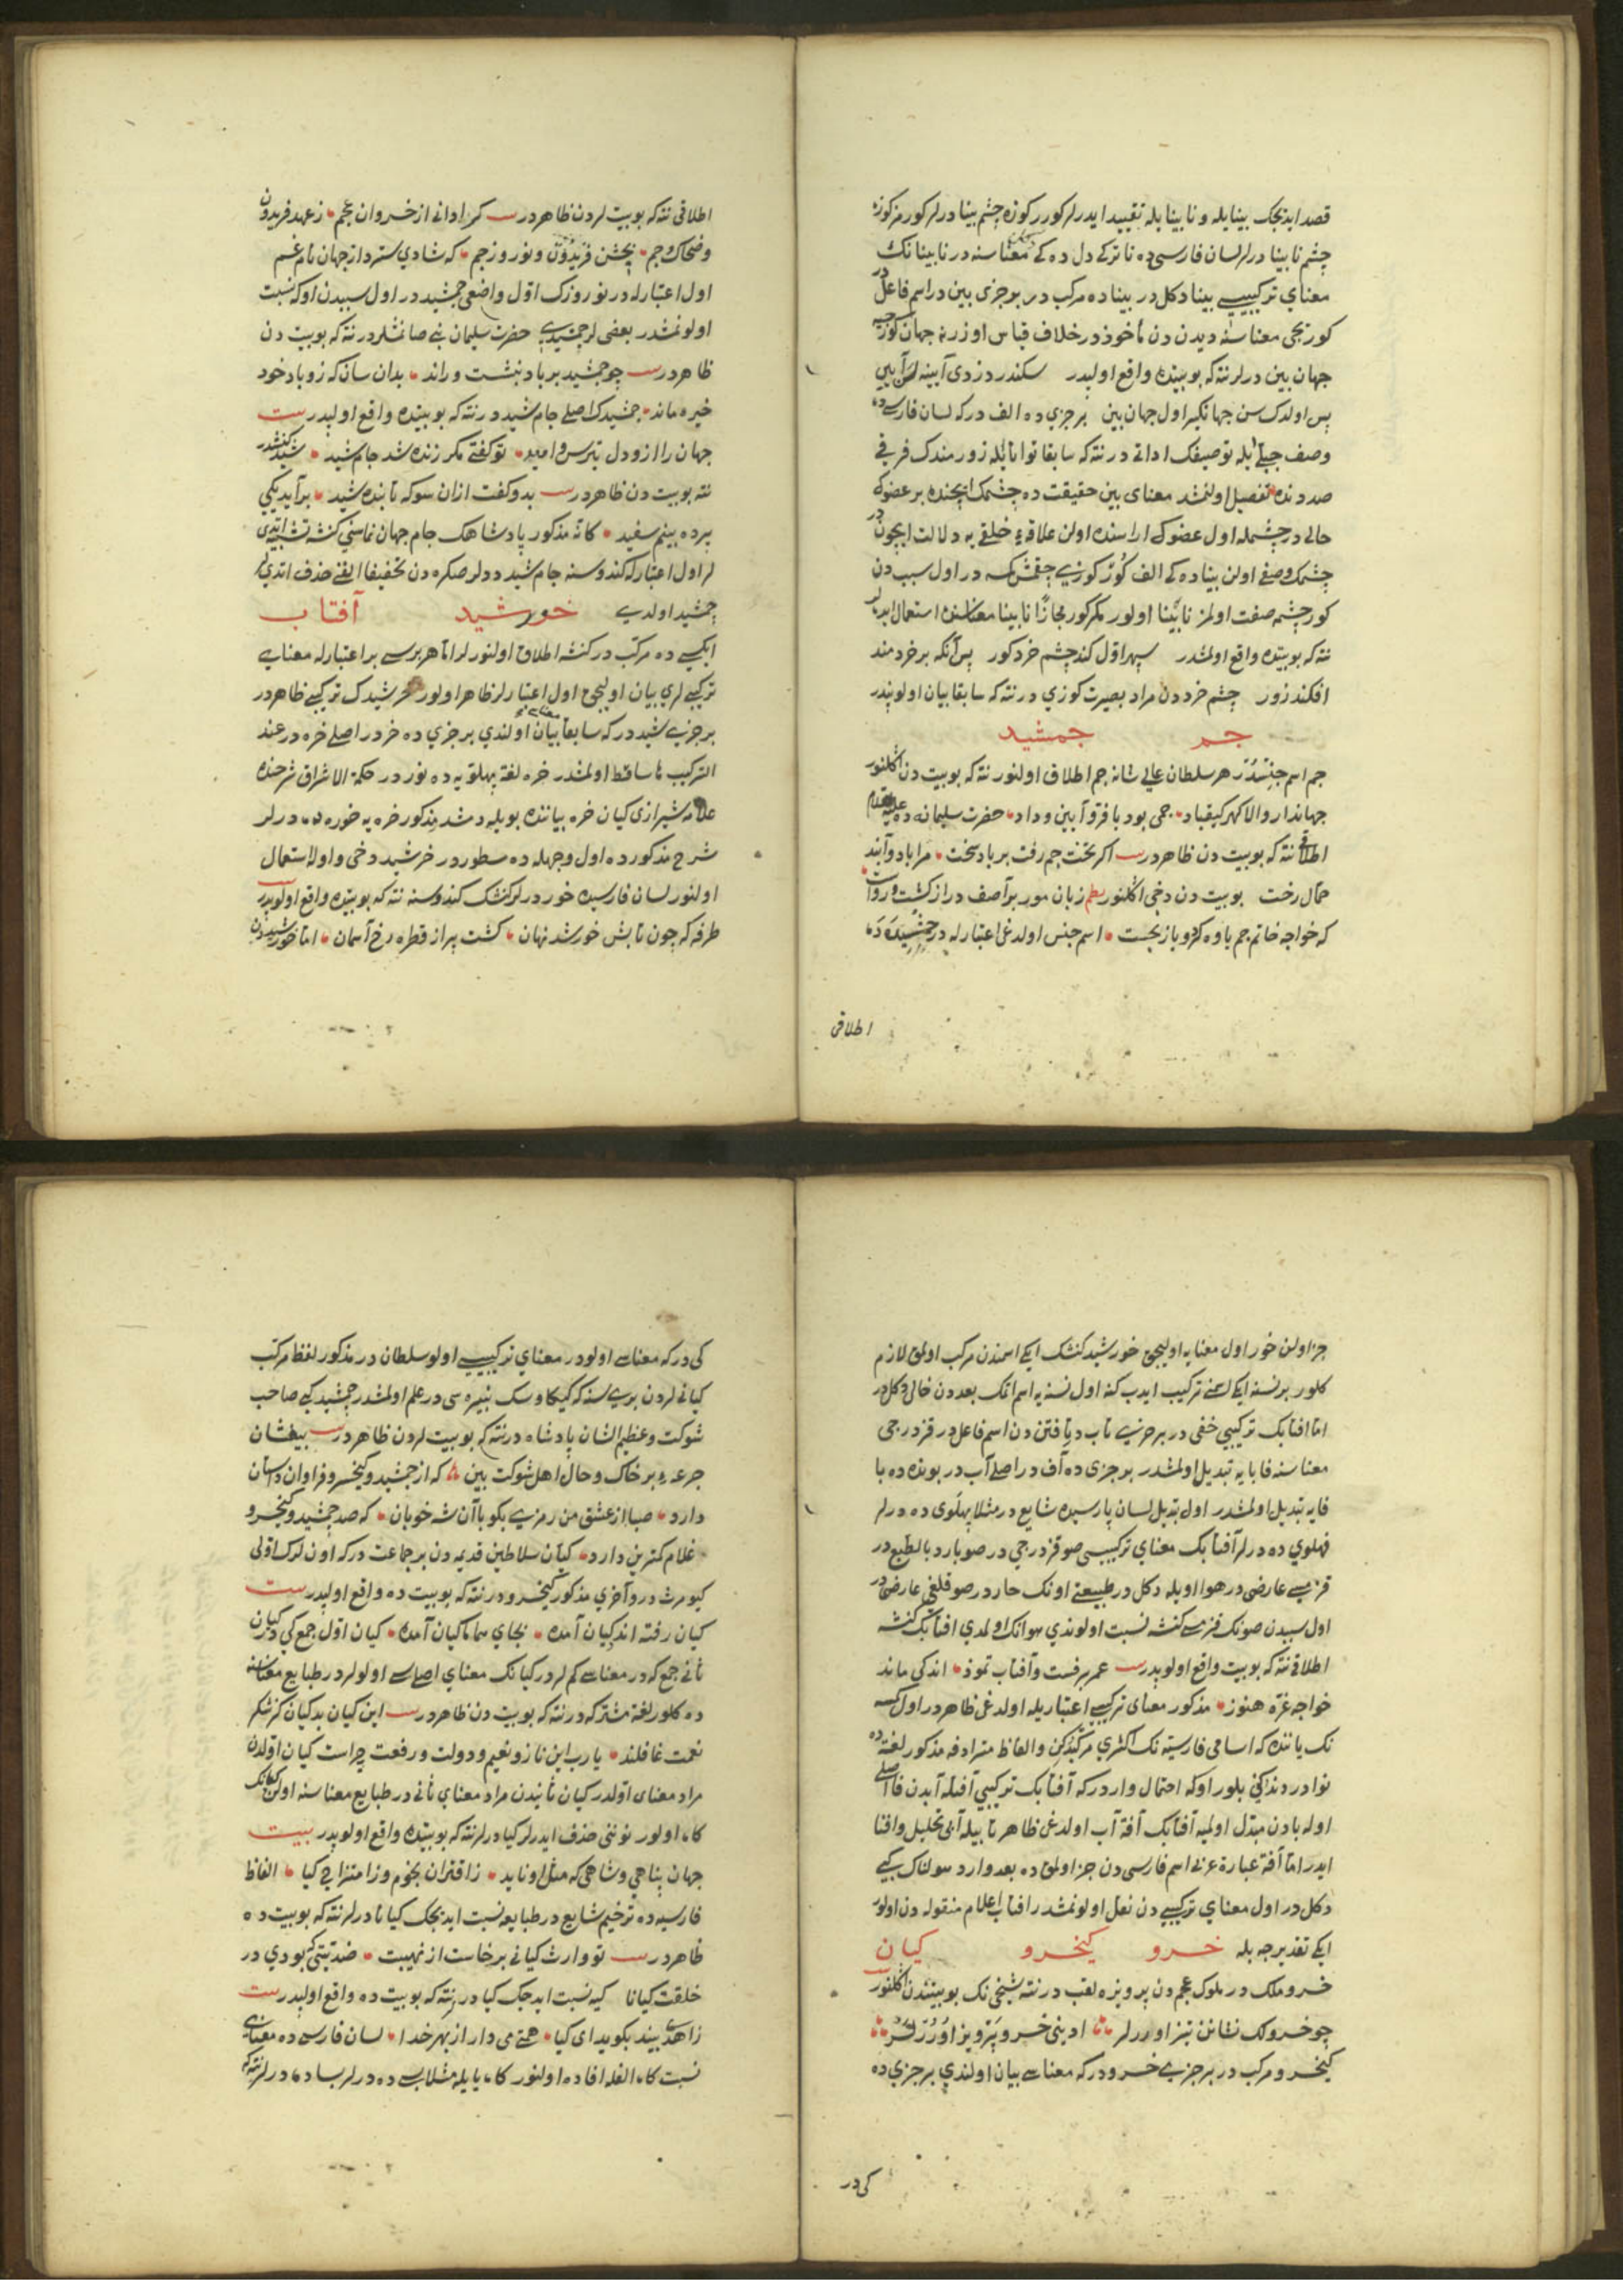 قصد ايدنجك بينايله و نابينا يله تقييد ايدرلر كورر كوزه چشم بينا درلر كورمز كوزه
چشم نابينا درلر لسان فارسيده نا تركى دل ده كى معناسنه در نابينا نك
معناى تركيبيسى بينا دكل در بيناده مركب در بر جزى بين در اسم فاعل در
كوريجى معناسنه ديدن دن مأخوذ در خلاف قياس اوزرنه جهان كوريجيه
جهان بين درلر نته كه بو بيتده واقع اولبدر سكندر زدى آيينه
پس اولدك سن جهانكير اول جهان بين بر جزى ده الف در كه لسان فارسيده
وصف جبلى ايله توصيفك اداتى در نته كه سابقا توانا ايله زورمندك فرقى
صددنده تفصيل اولنمشدر معناى بين حقيقت ده چشمك ايچنده بر عضوك
حالى در چشمله اول عضوك اراسنده اولن علاقهء خلقى يه دلالت ايچون در
چشمك وصفى اولن بيناده كى الف كور كوزى چقمش كمسه در اول سبب دن
كور چشمه صفت اولمز نابينا اولور مكر كور مجازًا نابينا معناسنده استعمال ايدهلر
نته كه بو بيتده واقع اولمشدر سپهر اول كند چشم خرد كور پس آنكه بر خردمند
افكند زور چشم خرددن مراد بصيرت كوزى در نته كه سابقا بيان اولوبدر
جم جمشيد
جم اسم جنسدر هر سلطان عالى شانه جم اطلاق اولنور نته كه بو بيت دن اكلنور
جهاندار والا كهر كيقباد جمى بود با فر و آيين و داد حضرت سليمانه ده عليه السلام
اطلاقى نته كه بو بيت دن ظاهردر بيت اكر تخت جم رفت بر باد سخت مرا باد و آيند
حمال رخت بو بيت دن دخى اكلنور نظم زبان مور بر آصف دراز كشت و رواست
كه خواجه خاتم جم ياوه كرد و باز نجست اسم جنس اولدغى اعتبارله در جمشيده ده
اطلاقى
اطلاقى نته كه بو بيت لردن ظاهردر بيت كر ادانى از خسروان عجم ز عهد فريدون
و ضحاك و جم بجشن فريدون و نوروز جم كه شادى سترد از جهان نام غم
اول اعتبارله در نوروزك اول واضعى جمشيد در اول سبيدن اوكه نسبت
اولونمشدر بعضى لر جمشيدى حضرت سليمان نبى صانمشلردر نته كه بو بيت دن
ظاهردر بيت چو جمشيد بر باد بنشست و راند بدان سان كه زو باد خود
خيره ماند جمشيدك اصلى جام شيد در نته كه بو بيتده واقع اولبدر بيت
جهان را ازو دل بترس و اميد تو كفتى مكر زنده شد جام شيد شيد كنشدر
نته بو بيت دن ظاهردر بيت بدو كفت ازان سو كه تابنده شيد برآيد يكى
پرده بينم سفيد كانه مذكور پادشاهك جام جهان نماسنى كنشه تشبيه ايتدى
لر اول اعتبارله كندوسنه جام شيد ددلر صكره دن تخفيفا الفنى حذف اتديلر
جمشيد اولدى خورشيد آفتاب
ايكسى ده مركب در كنشه اطلاق اولنور لر اما هر برى سى بر اعتبارله معناى
تركيبى لرى بيان اوليجق اول اعتبارلر ظاهر اولور خرشيدك تركيبى ظاهردر
بر جزى شيد در كه سابقا معناسى بيان اولندى بر جزى ده خر در اصلى خره در عند
التركيب ها ساقط اولمشدر خره لغة پهلويه ده نور در حكمة الاشراق شرحنده
علامه شيرازى كيان خره بياننده بويله دمشدر مذكور خره يه خوره ده درلر
شرح مذكورده اول وجهله ده مسطور در خرشيد دخى واولا استعمال
اولنور لسان فارسيده خور درلر كنشك كندوسنه نته كه بو بيتده واقع اولوبدر بيت
طرفه كه چون تابش خورشد نهان كشت پر از قطره رخ آسمان اما خورشيددن
جز اولن خور اول معنايه اوليجق خورشيد كنشك ايكى اسمندن مركب اولمق لازم
كلور بر نسنه ايكى اسمنى تركيب ايدب كنه اول نسنه يه اسم اتمك بعددن خالى دكل در
اما افتابك تركيبى خفى در بر جزى تاب در يافتن دن اسم فاعل در قزدرجى
معناسنه فا با يه تبديل اولمشدر بر جزى ده آف در اصلى آب در بونده ده با
فا يه تبديل اولمشدر اول تبديل لسان پارسيده شايع در مثلا پهلوى ده درلر
فهلوى ده درلر آفتابك معناى تركيبيسى صو قزدرجى در صو بارد بالطبع در
قزمسى عارضى در هوا اويله دكل در طبيعتى اونك حار در صوقلغى عارضى در
اول سبيدن صونك قزمسى كنشه نسبت اولوندى هوانك اولمدى افتابك كنشه
اطلاقى نته كه بو بيت واقع اولوبدر بيت عمر برفست و آفتاب تموز اندكى ماند
خواجه غره هنوز مذكور معناى تركيبى اعتباريله اولدغى ظاهردر اول كمسه
نك ياننده كه اسامى فارسيه نك اكثرى مركبدركن و الفاظ مترادفه مذكور لغتده
نوادر دندركنى بلور اوله احتمال وارد در كه آفتابك تركيبى آفتله آبدن فا اصلى
اوله بادن مبدل اولميه آفتابك آفة آب اولدغى ظاهر تابيله آبى تحليل و افنا
ايدر اما آفة عبارة عربى اسم فارسى دن جز اولمق ده بعد وارد سولناك كبى
دكل در اول معناى تركيبى دن نقل اولونمشدر افتاب اعلام منقوله دن اولور
ايكى تقديرجه بله خسرو كيخسرو كيان
خسرو ملك در ملوك عجم دن پرويزه لقب در نته شيخى نك بو بيتندن اكلنور
چو خسرولك نشانن تيز اوررلر ادينى خسرو پرويز اوررلر
كيخسرو مركب در بر جزى خسرو در كه معناسى بيان اولندى بر جزى ده
كى در
كى در كه معناسى اولو در معناى تركيبيسى اولو سلطان در مذكور لفظ مركب
كيانى لردن بريسنه كه كيكاوسك نبيره سى در علم اولمشدر جمشيد كبى صاحب
شوكت و عظيم الشان پادشاه در نته كه بو بيت لردن ظاهردر بيت بيفشان
جرعهء بر خاك و حال اهل شوكت بين كه از جمشيد و كيخسرو فراوان داستان
دارد صبا از عشق من رمزى بكو با آن شه خوبان كه صد جمشيد و كيخسرو
غلام كمترين دارد كيان سلاطين قديمه دن بر جماعت در كه اونلرك اولى
كيومرث در و آخرى مذكور كيخسرو در نته كه بو بيت ده واقع اولبدر بيت
كيان رفته اند كيان آمده بجاى هما ماكيان آمده كيان اول جمع كى در كيان
ثانى جمع كه در معناسى كم لر در كيانك معناى اصليسى اولولر در طبايع معناسنه
ده كلور لغة مشتركه در نته كه بو بيت دن ظاهردر بيت اين كيان بد كيان كز شكر
نعمت غافلند يا رب اين ناز و نعيم و دولت و رفعت چراست كيان اولدن
مراد معناى اولدر كيان ثانيدن مراد معناى ثانى در طبايع معناسنه اولن كيانك
كاه اولور نوننى حذف ايدرلر كيا درلر نته كه بو بيتده واقع اولوبدر بيت
جهان پناهى و شاهى كه مثل او نايد ز اقتران نجوم و ز امتزاج كيا الفاظ
فارسيده ترخيم شايع در طبايعه نسبت ايدجك كيانا درلر نته كه بو بيت ده
ظاهردر بيت تو وارث كيانى برخاست از نهيبت ضديتى كه بودى در
خلقت كيانا كيه نسبت ايدجك كيا در نته كه بو بيت ده واقع اولبدر بيت
زاهدى بيند بكويد اى كيا همتى مى دار از بهر خدا لسان فارسى ده معناى
نسبت كاه الفله افاده اولنور كاه يا يله مثلا پسى ده درلر پسا ده درلر نته كه